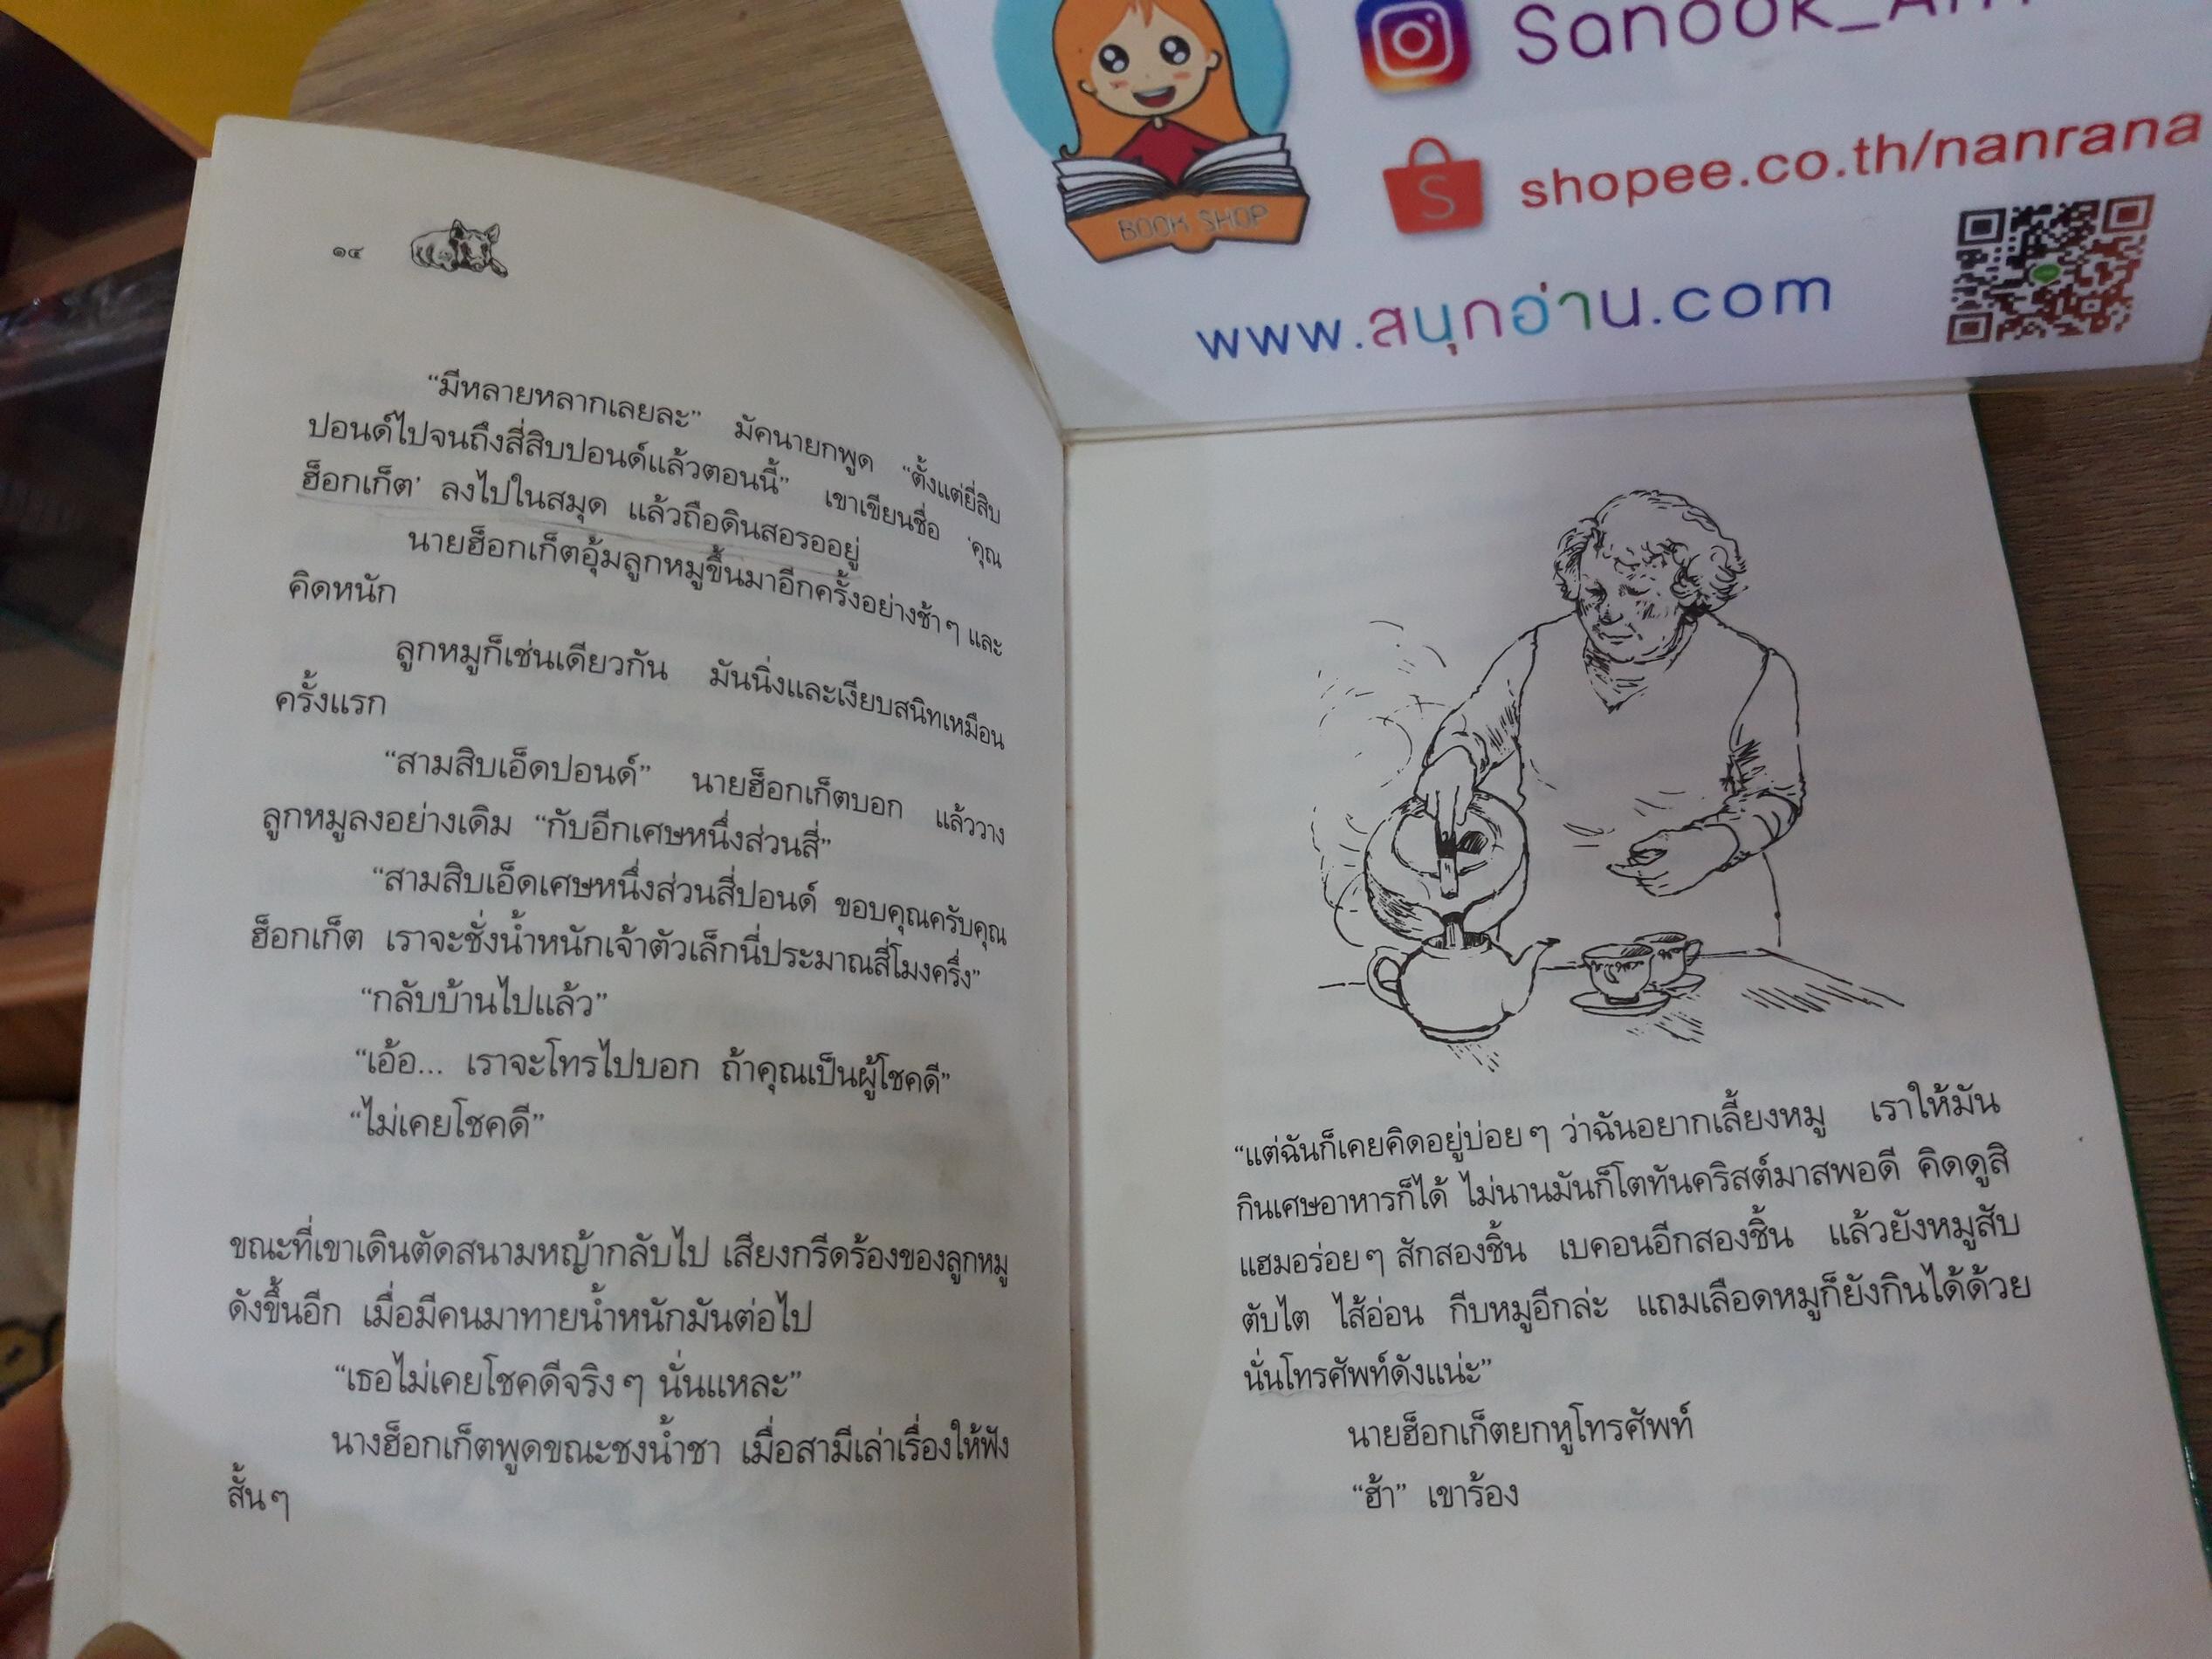 ๑๔
“มีหลายหลากเลยละ” มัคนายกพูด “ตั้งแต่ยี่สิบ
ปอนด์ไปจนถึงสี่สิบปอนด์แล้วตอนนี้” เขาเขียนชื่อ ‘คุณ
ฮ็อกเก็ต’ ลงไปในสมุด แล้วถือดินสอรออยู่
นายฮ็อกเก็ตอุ้มลูกหมูขึ้นมาอีกครั้งอย่างช้าๆ และ
คิดหนัก
ลูกหมูก็เช่นเดียวกัน มันนิ่งและเงียบสนิทเหมือน
ครั้งแรก
“สามสิบเอ็ดปอนด์” นายฮ็อกเก็ตบอก แล้ววาง
ลูกหมูลงอย่างเดิม “กับอีกเศษหนึ่งส่วนสี่”
“สามสิบเอ็ดเศษหนึ่งส่วนสี่ปอนด์ ขอบคุณครับคุณ
ฮ็อกเก็ต เราจะชั่งน้ำหนักเจ้าตัวเล็กนี่ประมาณสี่โมงครึ่ง”
“กลับบ้านไปแล้ว”
“เอ้อ... เราจะโทรไปบอก ถ้าคุณเป็นผู้โชคดี”
“ไม่เคยโชคดี”
ขณะที่เขาเดินตัดสนามหญ้ากลับไป เสียงกรีดร้องของลูกหมู
ดังขึ้นอีก เมื่อมีคนมาทายน้ำหนักมันต่อไป
“เธอไม่เคยโชคดีจริงๆ นั่นแหละ”
นางฮ็อกเก็ตพูดขณะชงน้ำชา เมื่อสามีเล่าเรื่องให้ฟัง
สั้นๆ
Sanook_
shopee.co.th/nanrana
BOOK SHOP
www.สนุกอ่าน.com
“แต่ฉันก็เคยคิดอยู่บ่อยๆ ว่าฉันอยากเลี้ยงหมู เราให้มัน
กินเศษอาหารก็ได้ ไม่นานมันก็โตทันคริสต์มาสพอดี คิดดูสิ
แฮมอร่อยๆ สักสองชิ้น เบคอนอีกสองชิ้น แล้วยังหมูสับ
ตับไต ไส้อ่อน กีบหมูอีกล่ะ แถมเลือดหมูก็ยังกินได้ด้วย
นั่นโทรศัพท์ดังแน่ะ”
นายฮ็อกเก็ตยกหูโทรศัพท์
“ฮ้า” เขาร้อง